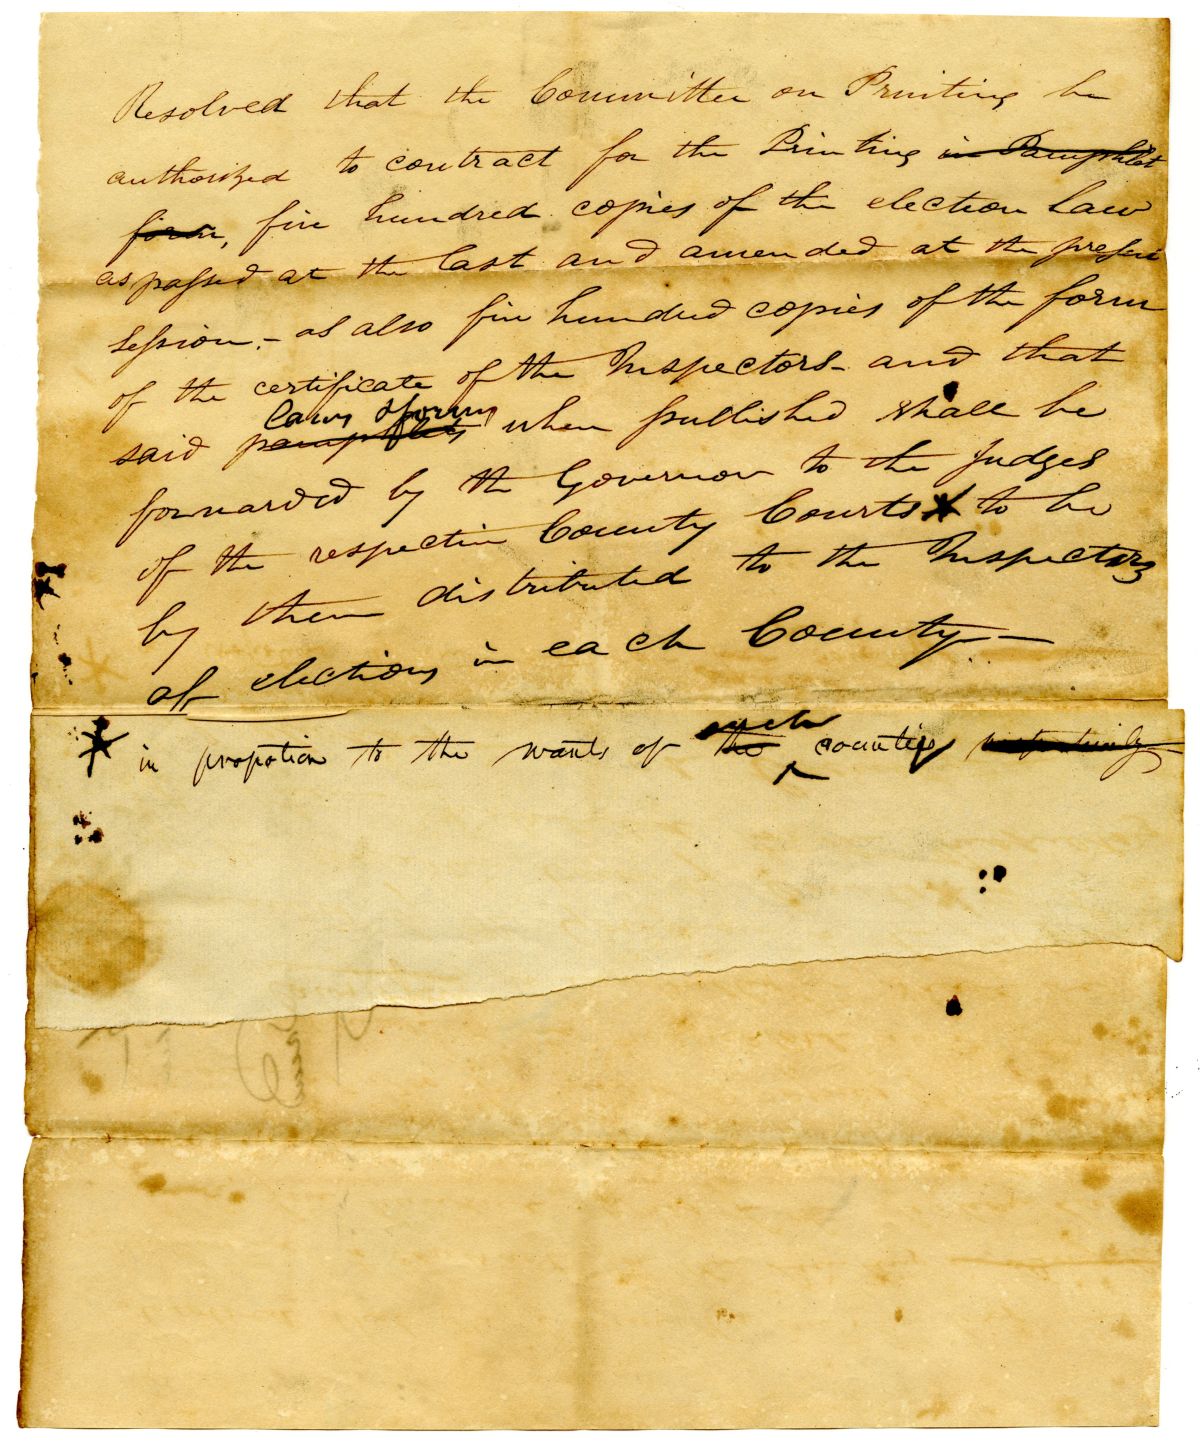 Resolved that the Committee on Printing be
authorized to contract for the Printing in Pamphlet
form, five hundred copies of the election law
as passed at the last and amended at the present
session. - as also five hundred copies of the form
of the certificate of the Inspectors - and that
laws & forms
said pamphlets when published shall be
forwarded by the Governor to the judges
of the respective County Courts * to be
by them distributed to the Inspectors
of elections in each County -
such
* in propotion to the wants of the ^ counties respectively